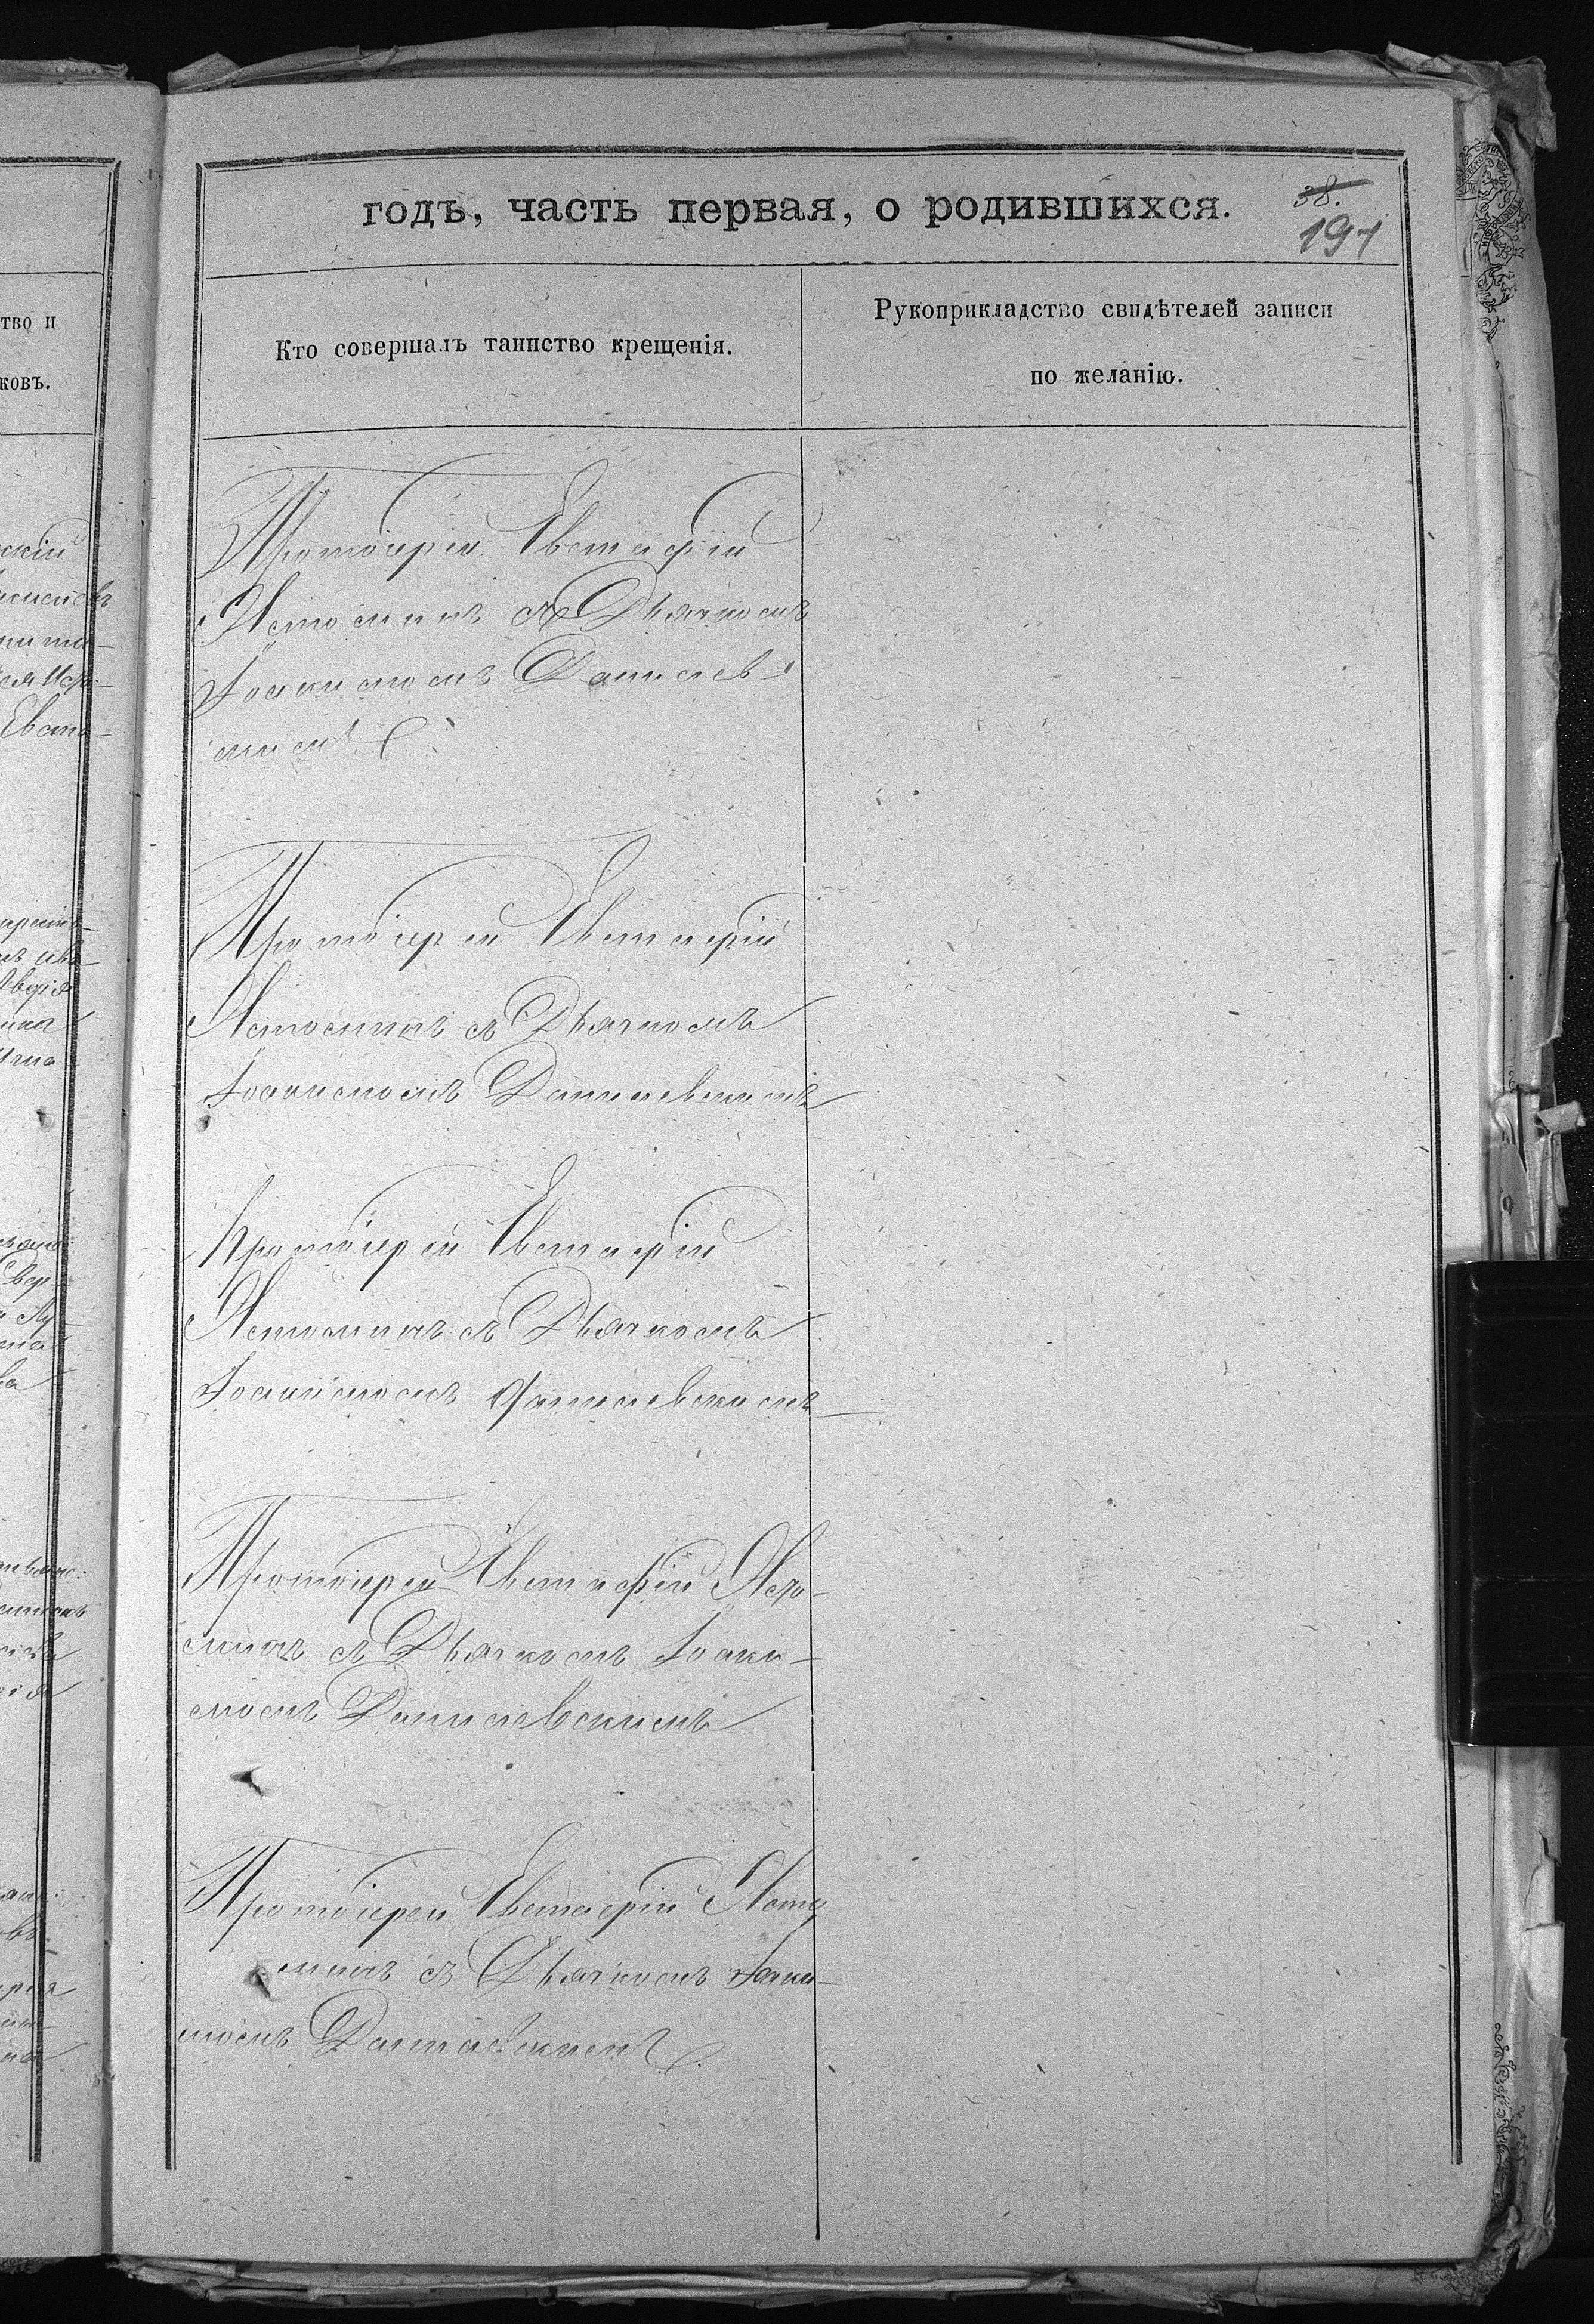 тво и
ковъ.
годъ, часть первая, о родившихся.
38.
191
Кто совершалъ таинство крещенія.
Рукоприкладство свидѣтелей записи
по желанію.
скій
Евста-
Протоіерей Евстафій
Истоминъ съ Дьячкомъ
Іоакимомъ Данилев-
скимъ
Протоіерей Евстафій
Истоминъ съ Дьячкомъ
Іоакимомъ Данилевскимъ
Протоіерей Евстафій
Истоминъ съ Дьячкомъ
Іоакимомъ Данилевскимъ
Протоіерей Евстафій Исто-
минъ съ Дьячкомъ Іоаки-
момъ Данилевскимъ
Протоіерей Евстафій Исто
минъ съ Дьячкомъ Іоаки-
момъ Данилевскимъ